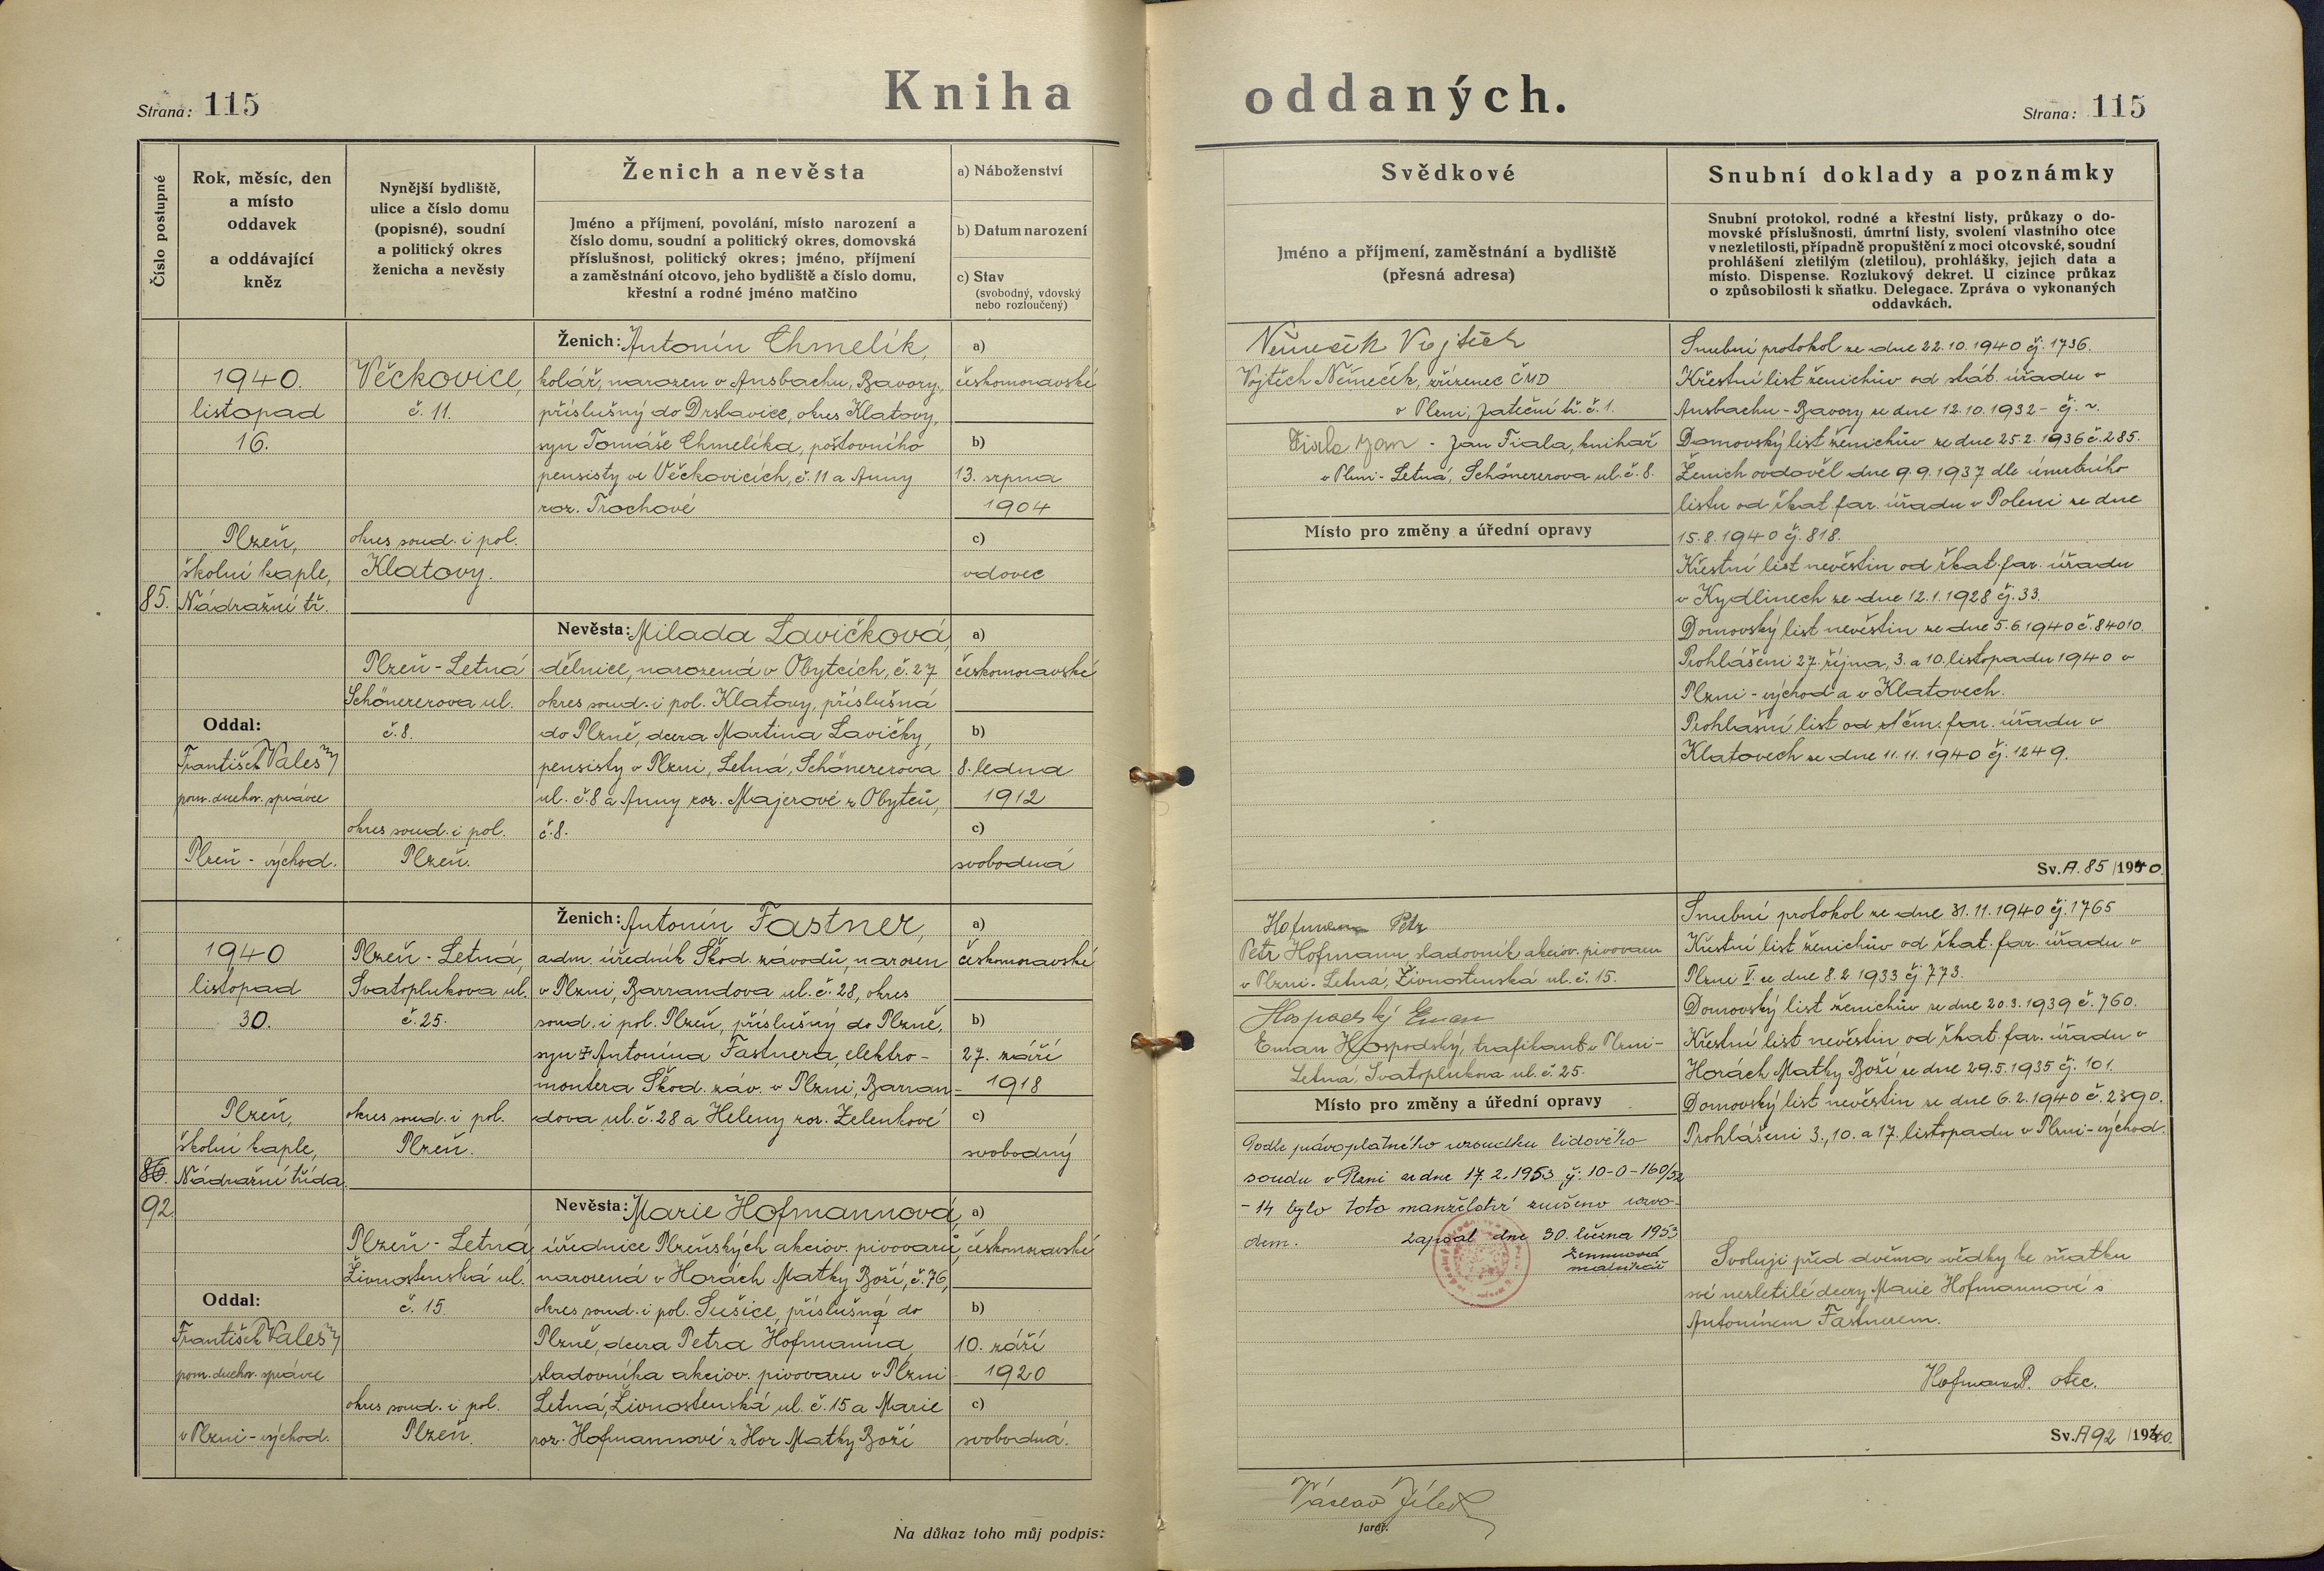 Kniha oddaných.
Strana: 115
Strana: 115
Číslo postupné
Rok, měsíc, den
a místo
oddavek
a oddávající
kněz
Nynější bydliště,
ulice a číslo domu
(popisné), soudní
a politický okres
ženicha a nevěsty
Ženich a nevěsta
Jméno a příjmení, povolání, místo narození a
číslo domu, soudní a politický okres, domovská
příslušnost, politický okres; jméno, příjmení
a zaměstnání otcovo, jeho bydliště a číslo domu,
křestní a rodné jméno matčino
a) Náboženství
b) Datum narození
c) Stav
(svobodný, vdovský
nebo rozloučený)
Svědkové
Jméno a příjmení, zaměstnání a bydliště
(přesná adresa)
Snubní doklady a poznámky
Snubní protokol, rodné a křestní listy, průkazy o do-
movské příslušnosti, úmrtní listy, svolení vlastního otce
v nezletilosti, případně propuštění z moci otcovské, soudní
prohlášení zletilým (zletilou), prohlášky, jejich data a
místo. Dispense. Rozlukový dekret. U cizince průkaz
o způsobilosti k sňatku. Delegace. Zpráva o vykonaných
oddavkách.
85.
1940.
listopad
16.
Plzeň,
školní kaple,
Nádražní tř.
Oddal:
František Valeš
pom. duchov. správce
Plzeň - východ.
Věčkovice,
č. 11.
okres soud. i pol.
Klatovy.
Plzeň - Letná
Schönererova ul.
č. 8.
okres soud. i pol.
Plzeň.
Ženich: Antonín Chmelík,
kolář, narozen v Ansbachu, Bavory,
příslušný do Drslavice, okres Klatovy,
syn Tomáše Chmelíka, poštovního
pensisty ve Věčkovicích, č. 11 a Anny
roz. Trochové
Nevěsta: Milada Lavičková,
dělnice, narozená v Obytcích, č. 27
okres soud. i pol. Klatovy, příslušná
do Plzně, dcera Martina Lavičky,
pensisty v Plzni, Letná, Schönererova
ul. č. 8 a Anny roz. Majerové z Obytců,
č. 8.
a)
českomoravské
b)
13. srpna
1904
c)
vdovec
a)
českomoravské
b)
8. ledna
1912
c)
svobodná
Němeček Vojtěch
Vojtěch Němeček, zřízenec ČMD
v Plzni, Žateční tř. č. 1.
Fiala Jan - Jan Fiala, knihař
v Plzni - Letná, Schönererova ul. č. 8.
Místo pro změny a úřední opravy
Snubní protokol ze dne 22.10.1940 čj. 1736.
Křestní list ženichův od stát. úřadu v
Ansbachu - Bavory ze dne 12.10.1932 -
Domovský list ženichův ze dne 25.2.1936 č. 285.
Ženich ovdověl dne 9.9.1937 dle úmrtního
listu od řkat. far. úřadu v Poleni ze dne
15.8.1940 čj. 818.
Křestní list nevěstin od řkat. far. úřadu
v Kydlinech ze dne 12.1.1928 čj. 33.
Domovský list nevěstin ze dne 5.6.1940 č. 84010.
Prohlášeni 27. října, 3. a 10. listopadu 1940 v
Plzni - východ a v Klatovech.
Prohlašní list od far. úřadu v
Klatovech ze dne 11.11.1940 čj. 1249.
Sv. A. 85 /1940.
86.
92.
1940
listopad
30.
Plzeň,
školní kaple,
Nádražní třída.
Oddal:
František Valeš
pom. duchov. správce
v Plzni - východ.
Plzeň - Letná,
Svatoplukova ul.
č. 25.
okres soud. i pol.
Plzeň.
Plzeň - Letná
Živnostenská ul.
č. 15.
okres soud. i pol.
Plzeň.
Ženich: Antonín Fastner,
adm. úředník Škod. závodů, narozen
v Plzni, Barrandova ul. č. 28, okres
soud. i pol. Plzeň, příslušný do Plzně,
syn † Antonína Fastnera, elektro-
montéra Škod. záv. v Plzni, Barran-
dova ul. č. 28 a Heleny roz. Zelenkové
Nevěsta: Marie Hofmannová,
úřednice Plzeňských akciov. pivovarů,
narozená v Horách Matky Boží, č. 76,
okres soud. i pol. Sušice, příslušná do
Plzně, dcera Petra Hofmanna,
sladovníka akciov. pivovaru v Plzni
Letná, Živnostenská ul. č. 15 a Marie
roz. Hofmannové z Hor Matky Boží
a)
českomoravské
b)
27. září
1918
c)
svobodný
a)
českomoravské
b)
10. září
1920
c)
svobodná.
Hofmann Petr
Petr Hofmann, sladovník akciov. pivovaru
v Plzni - Letná, Živnostenská ul. č. 15.
Hospodský Eman
Eman Hospodský, trafikant v Plzni -
Letná, Svatoplukova ul. č. 25.
Místo pro změny a úřední opravy
Podle právoplatného rozsudku lidového
soudu v Plzni ze dne 17.2.1953 čj. 10-0-160/52
-14 bylo toto manželství zrušeno rozvo-
dem. Zapsal dne 30. 1953
matrikář
Snubní protokol ze dne 31.11.1940 čj. 1765
Křestní list ženichův od řkat. far. úřadu v
Plzni V. ze dne 8.2.1933 čj. 773.
Domovský list ženichův ze dne 20.3.1939 č. 760.
Křestní list nevěstin od řkat. far. úřadu v
Horách Matky Boží ze dne 29.5.1935 čj. 101.
Domovský list nevěstin ze dne 6.2.1940 č. 2390.
Prohlášeni 3., 10. a 17. listopadu v Plzni - východ.
Svoluji před dvěma svědky ke sňatku
své nezletilé dcery Marie Hofmannové s
Antonínem Fastnerem.
Hofmann P. otec.
Sv. A 92 /1940.
Na důkaz toho můj podpis:
Václav
farář.